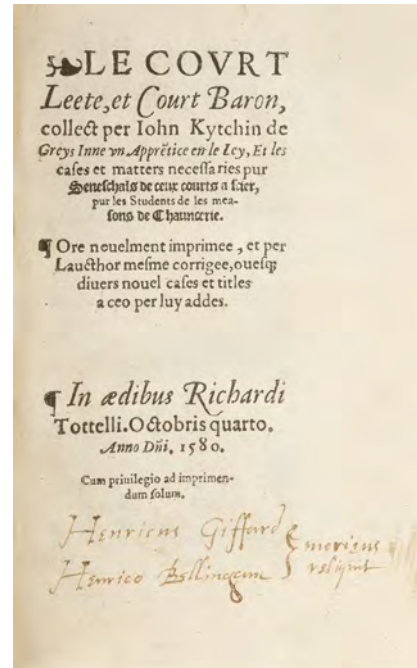 LE COVRT
Leete, et Court Baron,
collect per Iohn Kytchin de
Greys Inne vn Apprẽtice en le Ley, Et les
cases et matters necessaries pur
Seneschals de ceux courts a scier,
pur les Students de les mea-
sons de Chauncerie.
¶ Ore nouelment imprimee, et per
Laucthor mesme corrigee, ouesq;
diuers nouel cases et titles
a ceo per luy addes.
¶ In ædibus Richardi
Tottelli. Octobris quarto.
Anno Dñi. 1580.
Cum priuilegio ad imprimen-
dum solum.
Henricus Giffard
Henrico Bellingeam
moriens
reliquit